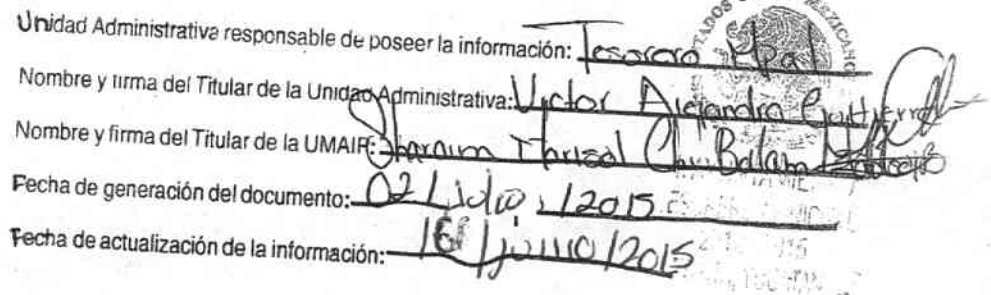 Unidad Administrativa responsable de poseer la información: Tesorero Mpal
Nombre y firma del Titular de la Unidad Administrativa: Victor Alejandro Gutierrez
Nombre y firma del Titular de la UMAIP: Marisol Balam
Fecha de generación del documento: 02/Julio/2015
Fecha de actualización de la información: 16/junio/2015